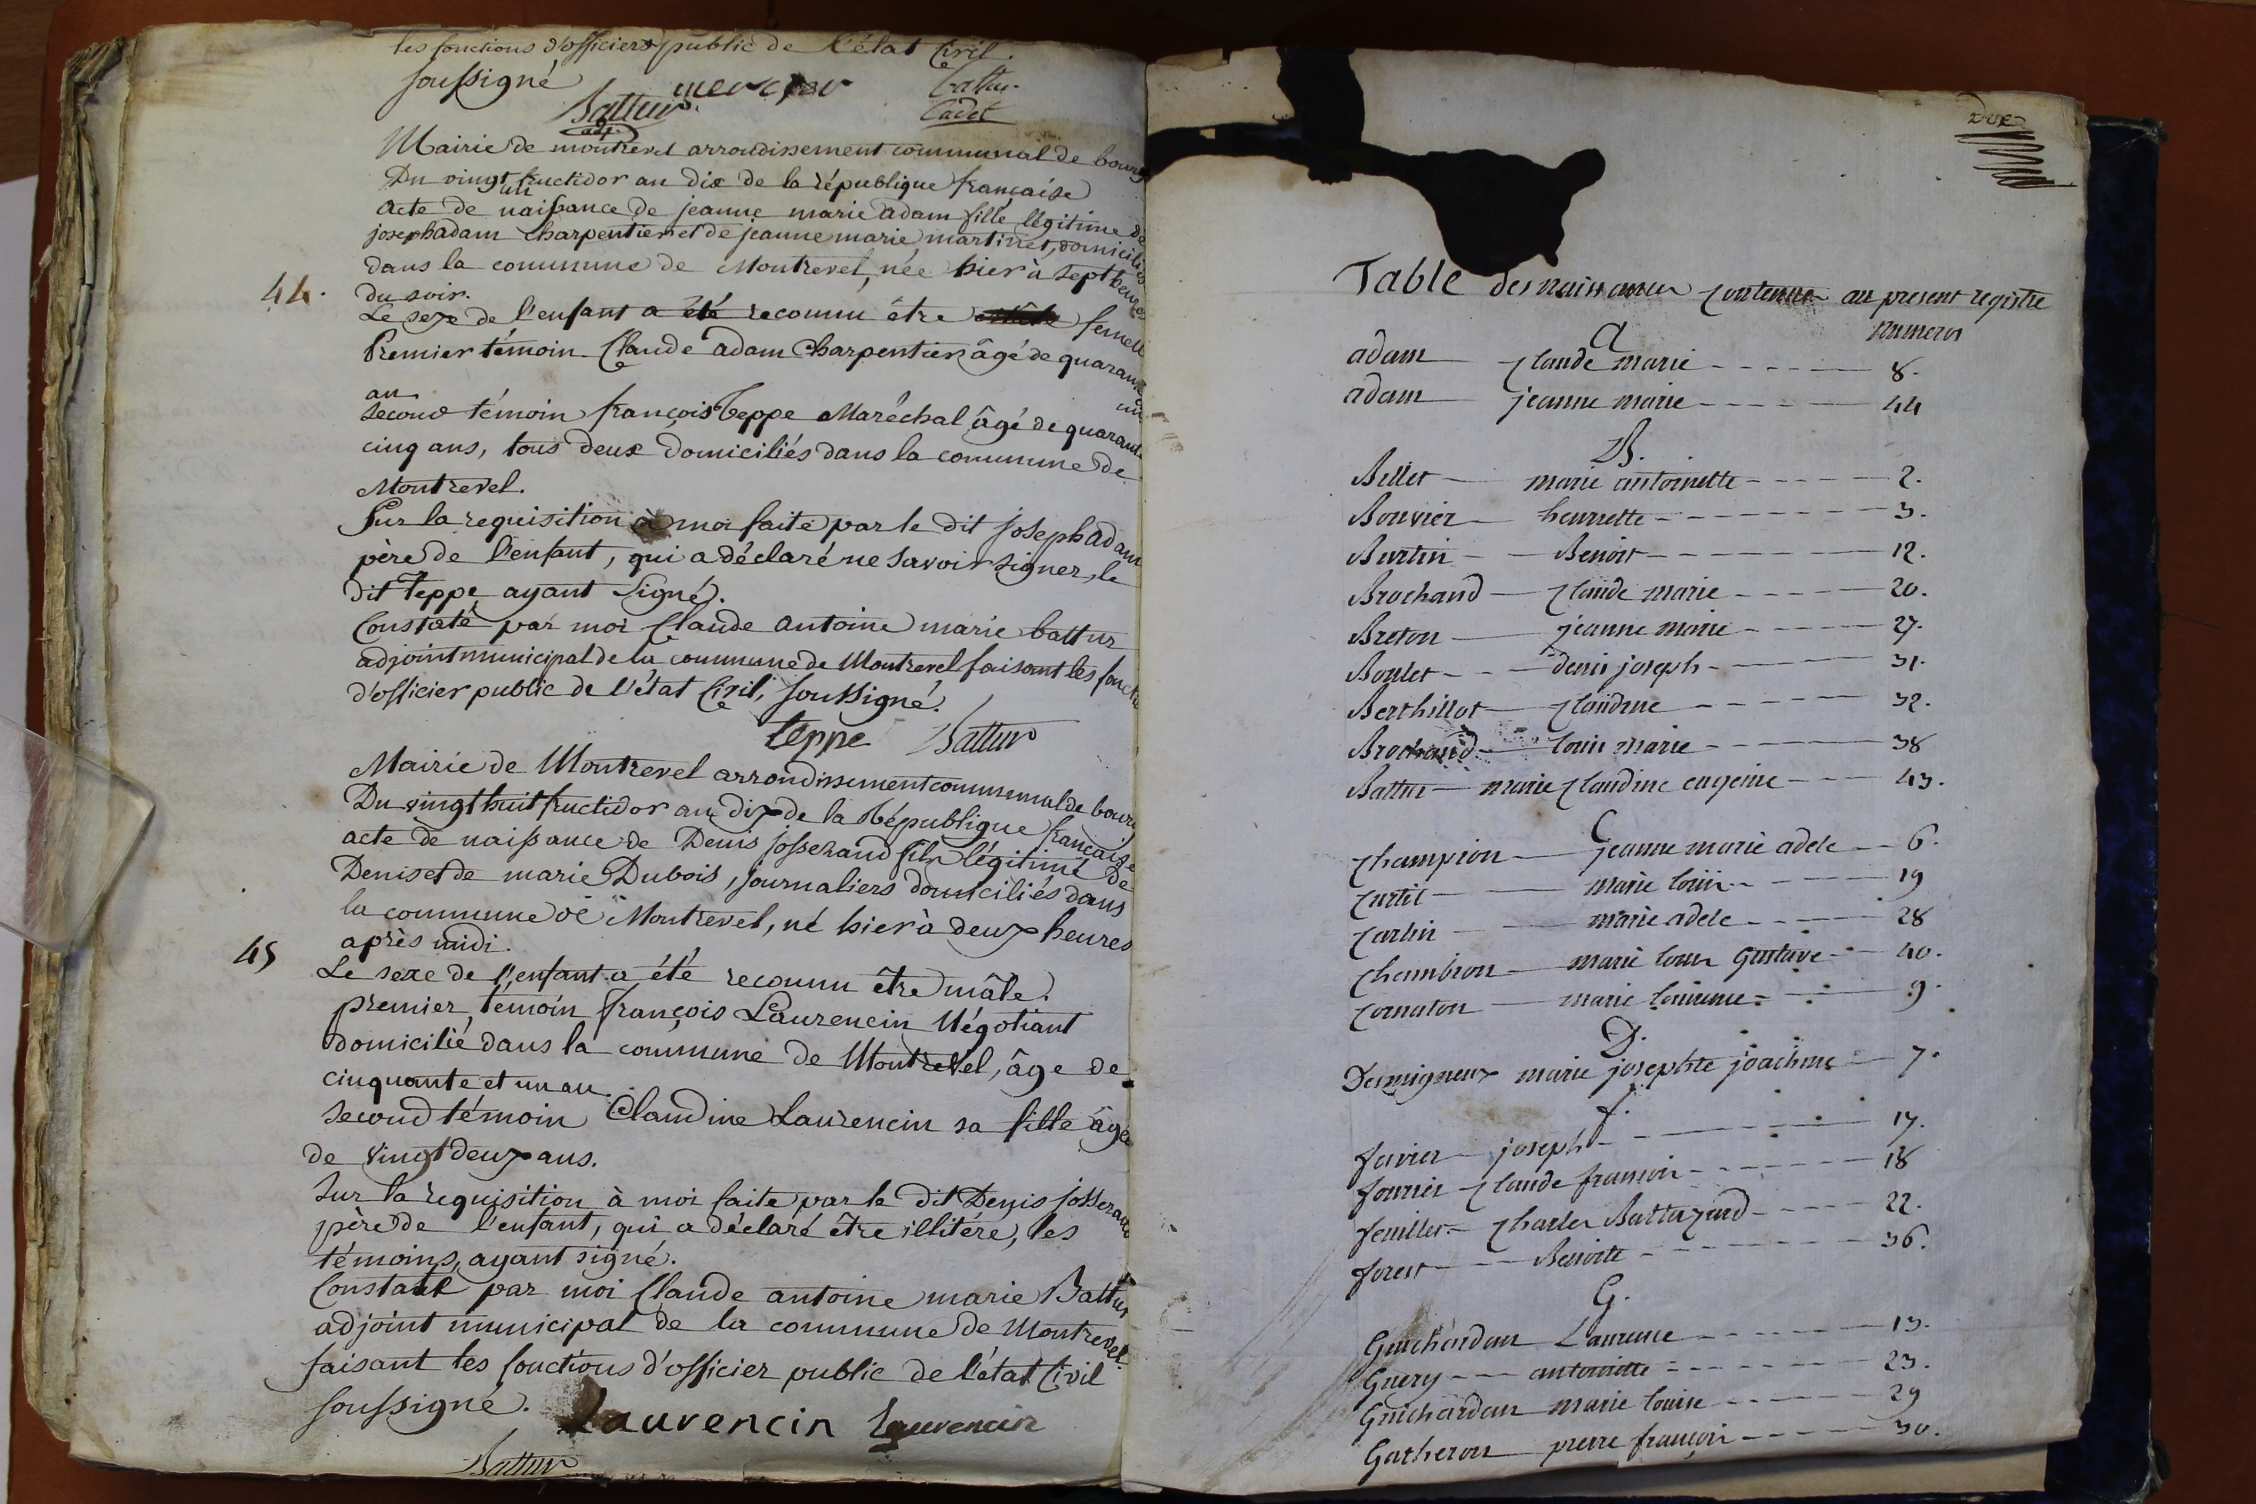 les fonctions d'officier public de l'état Civil.
soussigné
Battur mercier Battur
adj. Cadet
Mairie de montrevel arrondissement communal de bourg
Du vingt un fructidor an dix de la république française
acte de naissance de jeanne marie adam fille légitime de
joseph adam charpentier et de jeanne marie martinet, domiciliés
dans la commune de Montrevel, née hier à sept heures
44. du soir.
Le sexe de l'enfant a été reconnu être femelle
Premier témoin Claude adam charpentier âgé de quarante un
an
second témoin françois Teppe Maréchal âgé de quarante
cinq ans, tous deux domiciliés dans la commune de
Montrevel.
Sur la requisition à moi faite par le dit joseph adam
père de l'enfant, qui a déclaré ne savoir signer, le
dit Teppe ayant signé.
Constaté par moi Claude antoine marie battur
adjoint municipal de la commune de Montrevel faisant les foncti
d'officier public de l'état Civil, soussigné.
teppe Battur
Mairie de Montrevel arrondissement communal de bourg
Du vingt huit fructidor an dix de la République française
acte de naissance de Denis josserand fils légitime de
Denis et de marie Dubois, journaliers domiciliés dans
la commune de Montrevel, né hier à deux heures
45 après midi.
Le sexe de l'enfant a été reconnu être mâle.
premier témoin françois Laurencin Négotiant
domicilié dans la commune de Montrevel, âge de
cinquante et un an
second témoin Claudine Laurencin sa fille âgé
de vingt deux ans.
sur la requisition à moi faite par le dit Denis josserand
père de l'enfant, qui a déclaré être illitéré, les
témoins, ayant signé.
Constaté par moi Claude antoine marie Battur
adjoint municipal de la commune de Montrevel
faisant les fonctions d'officier public de l'état Civil
soussigné.
Laurencin Laurencin
Battur
Dix
Table des naissances contenues au present registre
A numeros
adam claude marie 8.
adam jeanne marie 44
B.
Billet marie antoinette 2.
Bouvier henriette 3.
Burtin Benoit 12.
Brochand claude marie 20.
Breton jeanne marie 27.
Boulet denis joseph 31.
Berthillot claudine 32.
Brochand louis marie 38
Battur marie claudine eugenie 43.
C
champion jeanne marie adele 6.
curtil marie louis 19
carlin marie adele 28
chambion marie louis Gustave 40.
cornaton marie 9.
D.
Desmigneux marie josephte joachime 7.
f.
favier joseph 17.
fournier claude françois 18
feuillet charles Baltazard 22.
forest Benoite 36.
G.
Guichardan Laurence 13.
Guery antoinette 23.
Guichardan marie louise 29
Gatheron pierre françois 30.